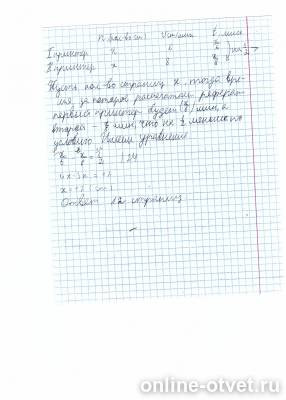 V стр/мин t, мин
I принтер x 6 x/6
II принтер x 8 x/8
Пусть кол-во страниц x, тогда вре-
мя, за которое распечатает реферат
первый принтер, будет (x/6) мин, а
второй - x/8 мин, что на
условию. Имеем уравнение
x/6 - x/8 = 1/2 | 24
4x - 3x = 12
x = 12 (стр)
Ответ 12 страниц
online-otvet.ru